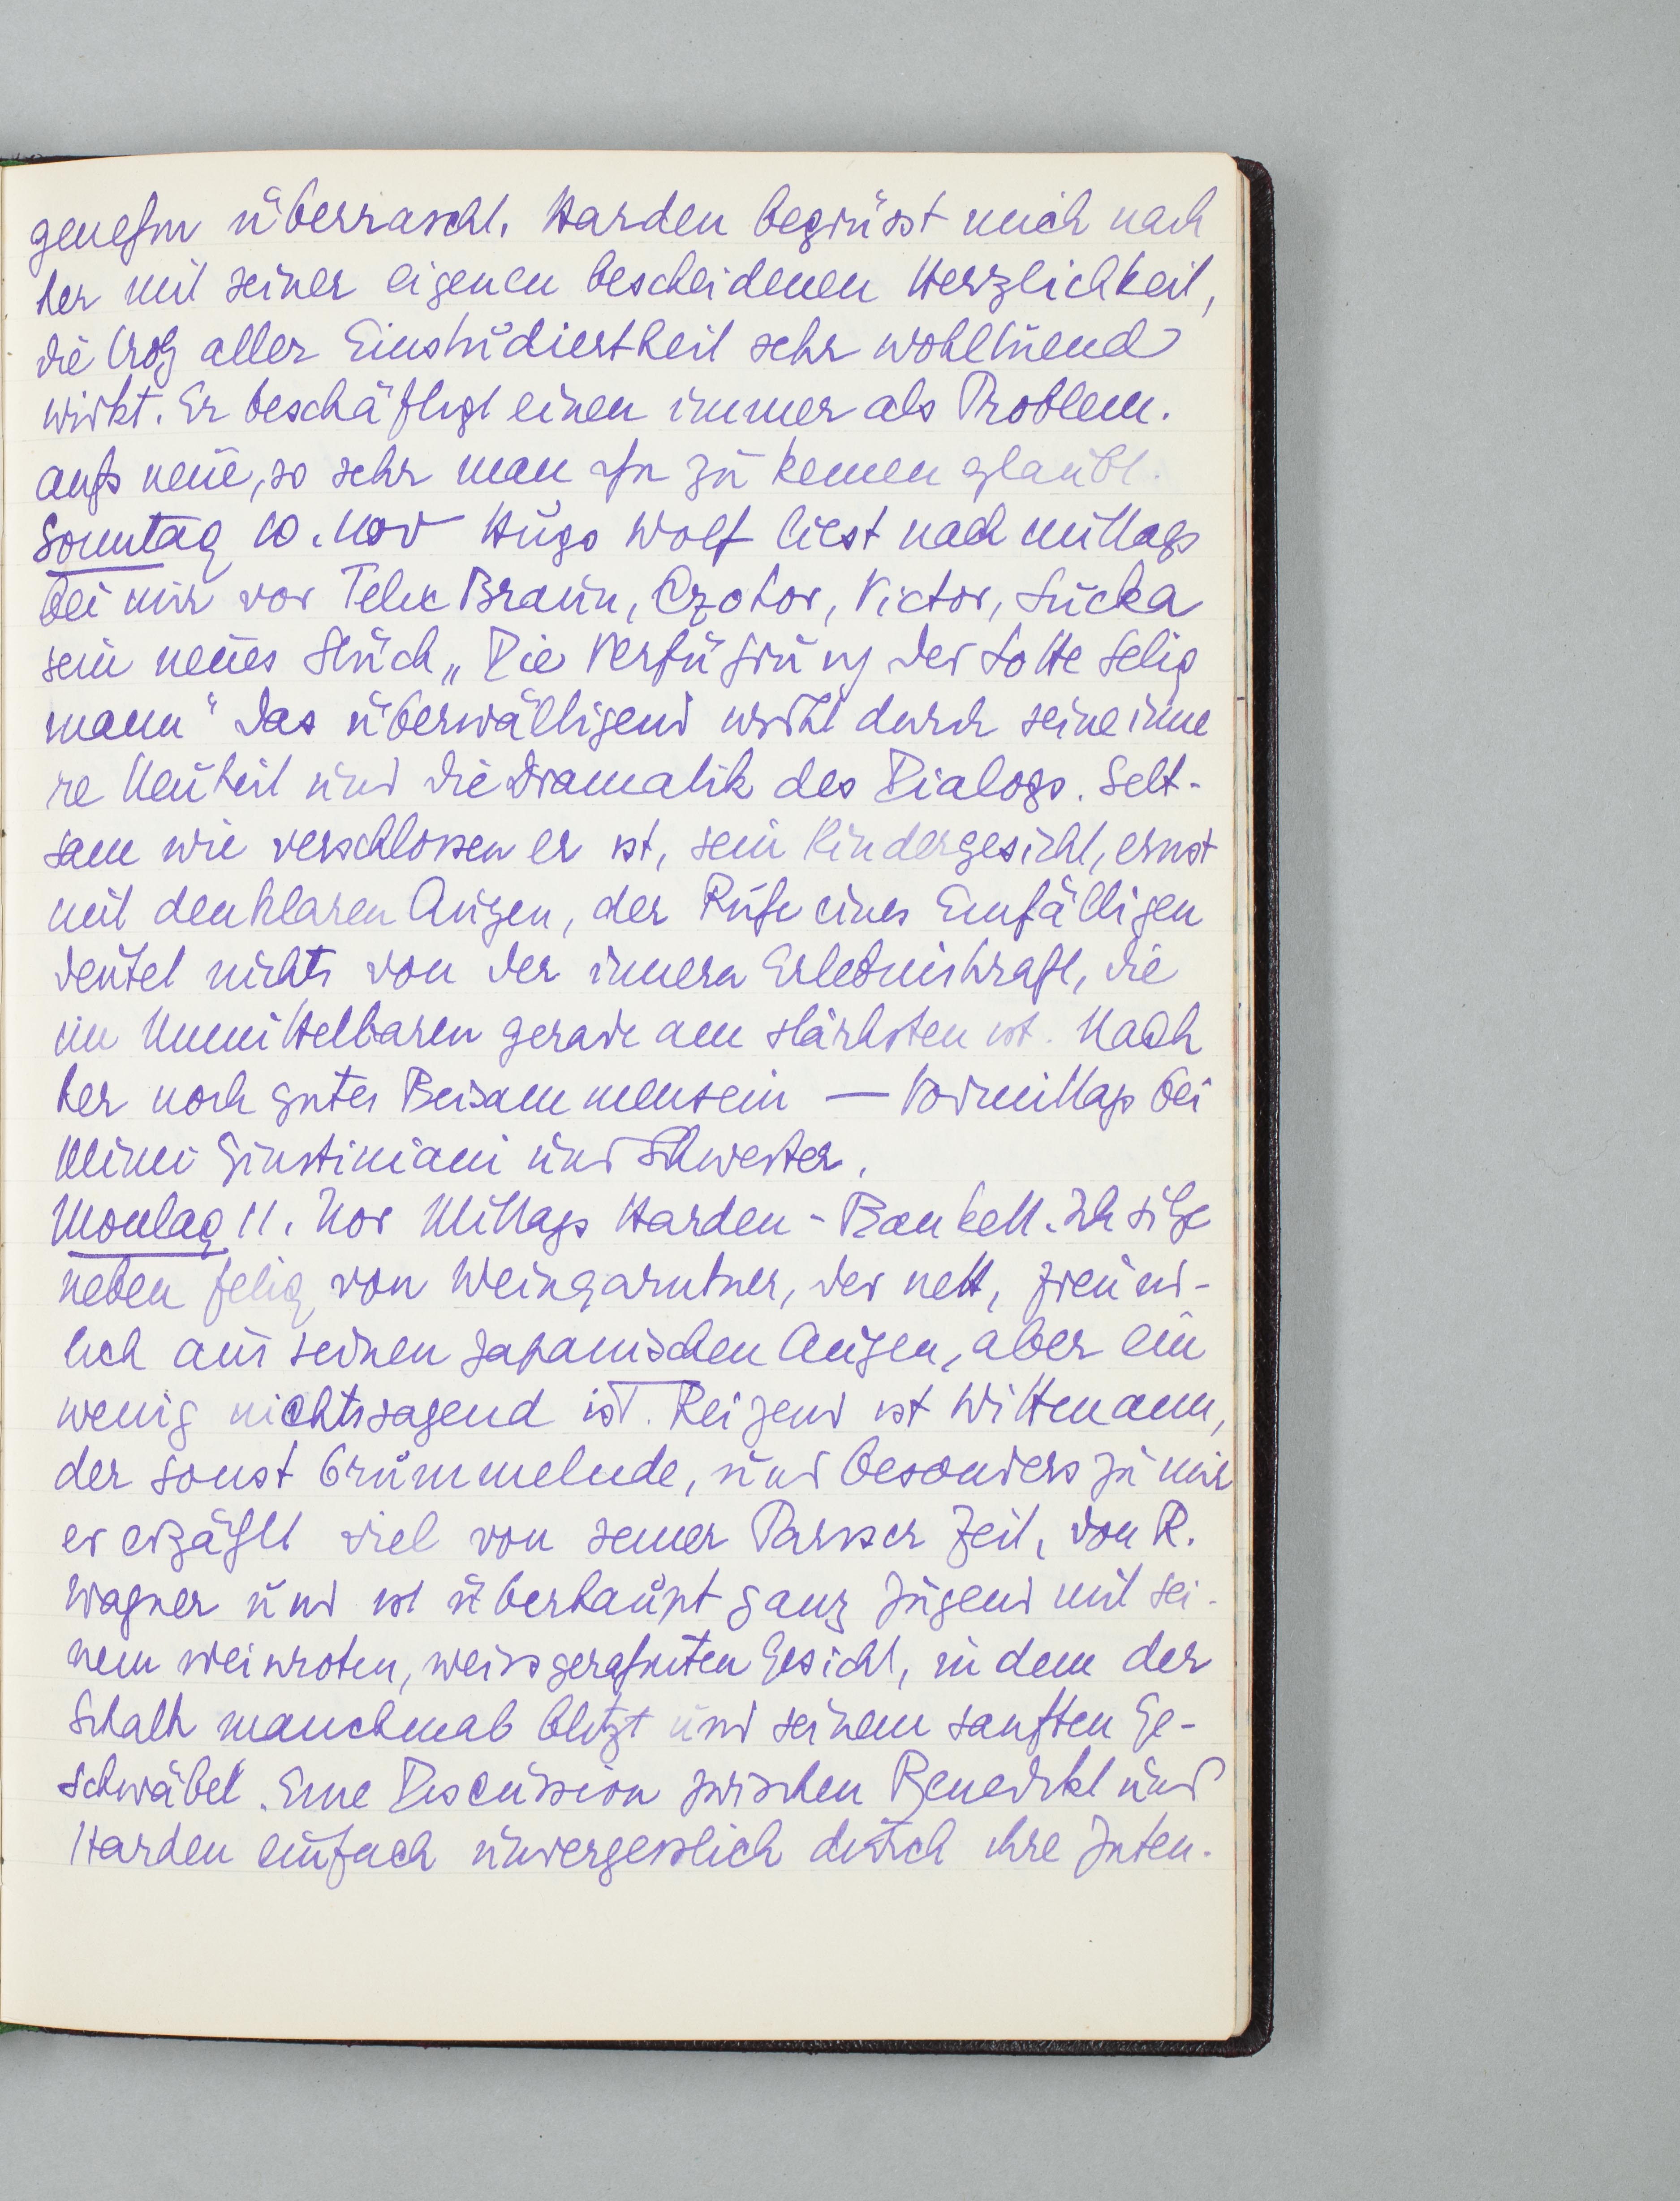 genehm überrascht. Harden begrüsst mich nach
her mit seiner eigenen bescheidenen Herzlichkeit,
die trotz aller Einstudiertheit sehr wohltuend
wirkt. Er beschäftigt einen immer als Problem.
aufs neue, so sehr man ihn zu kennen glaubt.
Sonntag 10. Nov Hugo Wolf liest nachmittags
bei mir vor Felix Braun, Czokor, Victor, Lucka
sein neues Stück „Die Verführung der Lotte Selig
mann“ das überwältigend wirkt durch seine inne
re Neuheit und die Dramatik des Dialogs. Selt-
sam wie verschlossen er ist, sein Kindergesicht, ernst
mit den klaren Augen, der Ruhe eines Einfältigen
deutet nichts von der innern Erlebniskraft, die
im Unmittelbaren gerade am stärksten ist. Nach
her noch gutes Beisammensein — Vormittags bei
Mimi Giustiniani und Schwester.
Montag 11. Nov Mittags Harden-Bankett. Ich sitze
neben Felix von Weingarntner, der nett, freund-
lich aus seinen japanischen Augen, aber ein
wenig nichtssagend ist. Reizend ist Wittmann,
der sonst Brummelnde, und besonders zu mir
er erzählt viel von seiner Pariser Zeit, von R.
Wagner und ist überhaupt ganz Jugend mit sei-
nem weinroten, weissgerahmten Gesicht, in dem der
Schalk manchmal blitzt und seinem sanften Ge-
schwäbel. Eine Discussion zwischen Benedikt und
Harden einfach unvergesslich durch ihre Inten-